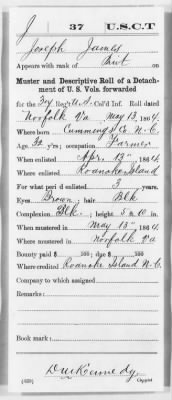 J 37 U.S.C.T
Joseph James
Appears with rank of Pvt on
Muster and Descriptive Roll of a Detach-
ment of U. S. Vols. forwarded
for the 37 Reg't U.S. Col'd Inf. Roll dated
Norfolk Va May 13, 1864.
Where born Cummings Co. N.C.
Age 32 y'rs; occupation Farmer
When enlisted Apr. 13", 1864
Where enlisted Roanoke Island
For what period enlisted 3 years.
Eyes Brown; hair Blk
Complexion Blk.; height 5 ft 10 in.
When mustered in May 13", 1864
Where mustered in Norfolk Va
Bounty paid $ 100; due $ 100
Where credited Roanoke Island N.C.
Company to which assigned
Remarks:
Book mark:
Copyist